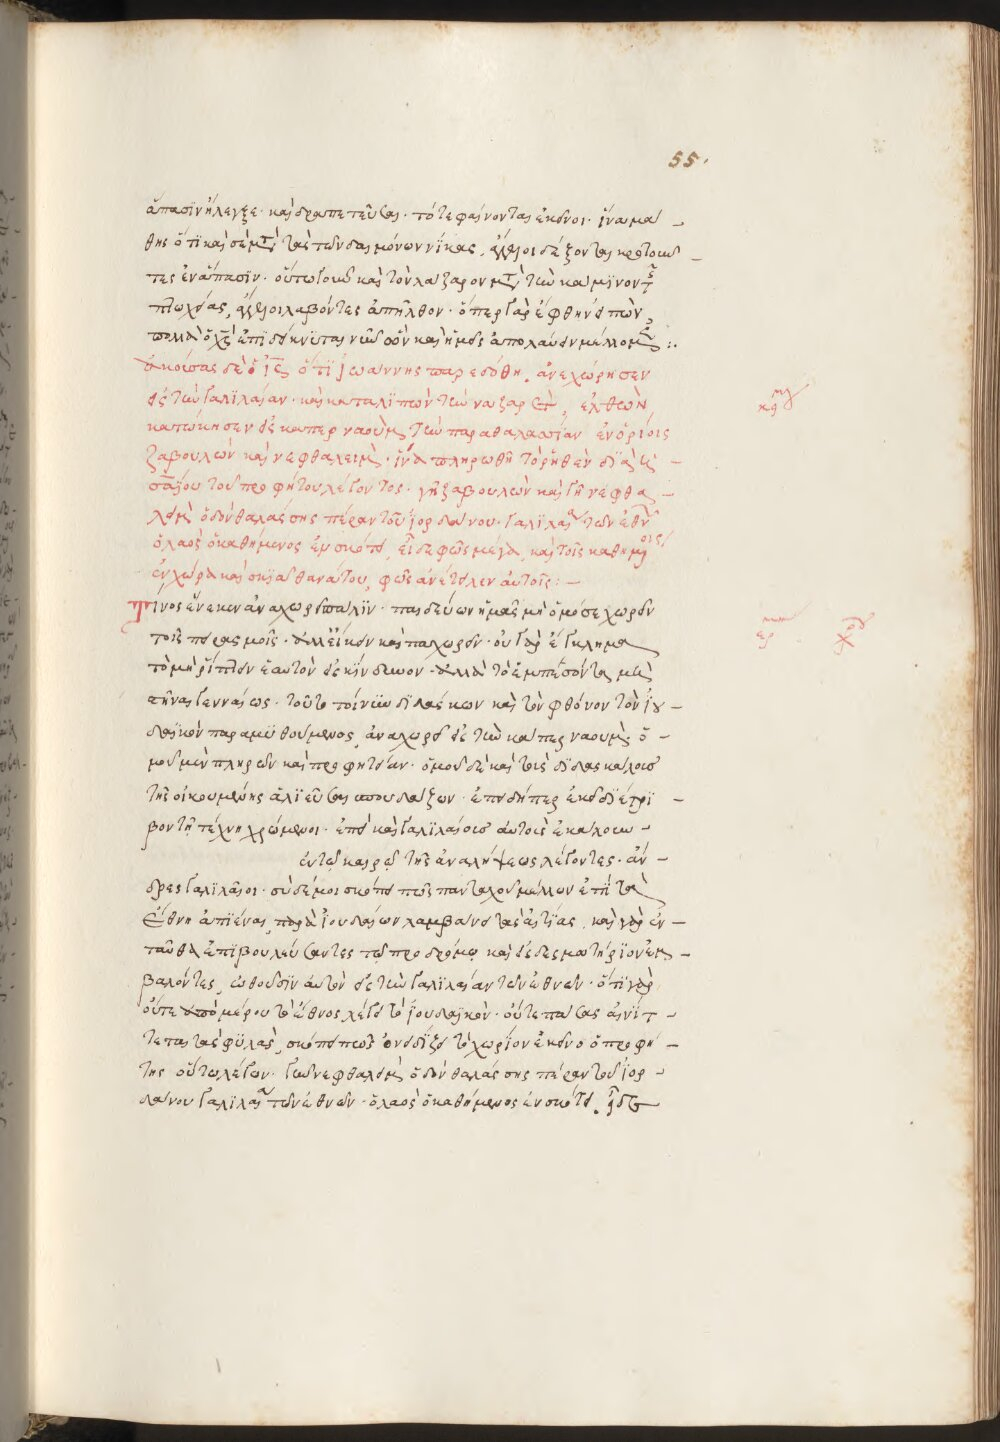 55.
ἅπασιν ἤλεγξε· καὶ δραπετεῦσαι· τότε φαίνονται ἐκεῖνοι· ἵνα μά
θῃς ὅτι καὶ σὲ μετὰ τὰς τῶν δαιμόνων νίκας, ἄγγελοι δέξονται κροτοῦν
τες ἐν ἅπασιν· οὕτω γοῦν καὶ τὸν λάζαρον μετὰ τὴν κάμινον τῆς
πτωχείας, ἄγγελοι λαβόντες ἀπῆλθον· ὅπερ γὰρ ἔφθην εἰπὼν,
πολλὰ ὁ χς ἐπιδείκνυται νῦν ὧν καὶ ἡμεῖς ἀπολαύειν μέλλομεν :.
ἀκούσας δὲ ὁ ις ὅτι ἰωάννης παρεδόθη, ἀνεχώρησεν
εἰς τὴν γαλιλαίαν· καὶ καταλιπὼν τὴν ναζαρὲτ, ἐλθὼν
κατώκησεν εἰς καπερναοὺμ τὴν παραθαλασσίαν ἐν ὁρίοις
ζαβουλὼν καὶ νεφθαλεὶμ· ἵνα πληρωθῇ τὸ ῥηθὲν διὰ ἠ
σαΐου τοῦ προφήτου λέγοντος· γῆ ζαβουλὼν καὶ γῆ νεφθα
λεὶμ ὁδὸν θαλάσσης πέραν τοῦ ἰορδάνου· γαλιλαία τῶν ἐθνῶν
ὁ λαὸς ὁ καθήμενος ἐν σκότει, εἶδε φῶς μέγα, καὶ τοῖς καθημένοις
ἐν χώρα καὶ σκιᾶ θανάτου, φῶς ἀνέτειλεν αὐτοῖς : –
τίνος ἕνεκεν ἀναχωρεῖ πάλιν· παιδεύων ἡμᾶς μὴ ὁμόσε χωρεῖν
τοῖς πειρασμοῖς· ἀλλ' εἴκειν καὶ παραχωρεῖν· οὐ γὰρ ἔγκλημα
τὸ μὴ ῥίπτειν ἑαυτὸν εἰς κίνδυνον· ἀλλὰ τὸ ἐμπεσόντα μὴ
στῆναι γενναίως· τοῦτο τοίνυν διδάσκων καὶ τὸν φθόνον τὸν ἰου
δαϊκὸν παραμυθούμενος, ἀναχωρεῖ εἰς τὴν καπερναούμ· ὁ
μοῦ μὲν πληρῶν καὶ προφητείαν· ὁμοῦ δὲ καὶ τοὺς διδασκάλους
τῆς οἰκουμένης ἁλιεῦσαι σπουδάζων· ἐπειδήπερ ἐκεῖ διέτρι
βον τῆ τέχνη χρώμενοι· ἐπεὶ καὶ γαλιλαίους αὐτοὺς ἐκάλουν
ἐν τῷ καιρῷ τῆς ἀναλήψεως λέγοντες· ἄν
δρες γαλιλαῖοι· σὺ δέ μοι σκόπει πῶς πανταχοῦ μέλλων ἐπὶ τὰ
ἔθνη ἀπιέναι, παρὰ ἰουδαίων λαμβάνει τὰς αἰτίας, καὶ γὰρ ἐν
ταῦθα ἐπιβουλεύσαντες τῷ προδρόμῳ καὶ εἰς δεσμωτήριον ἐμ
βαλόντες, ὠθοῦσιν αὐτὸν εἰς τὴν γαλιλαίαν τῶν ἐθνῶν· ὅτι γὰρ
οὔτε ἀπὸ μέρους τὸ ἔθνος λέγει τὸ ἰουδαϊκὸν· οὔτε πάσας αἰνίτ
τεται τὰς φυλὰς, σκόπει πῶς διορίζει τὸ χωρίον ἐκεῖνο ὁ προφή
της οὕτω λέγων· γῆ νεφθαλεὶμ ὁδὸν θαλάσσης πέραν τοῦ ἰορ
δάνου γαλιλαία τῶν ἐθνῶν· ὁ λαὸς ὁ καθήμενος ἐν σκότει, εἶδε